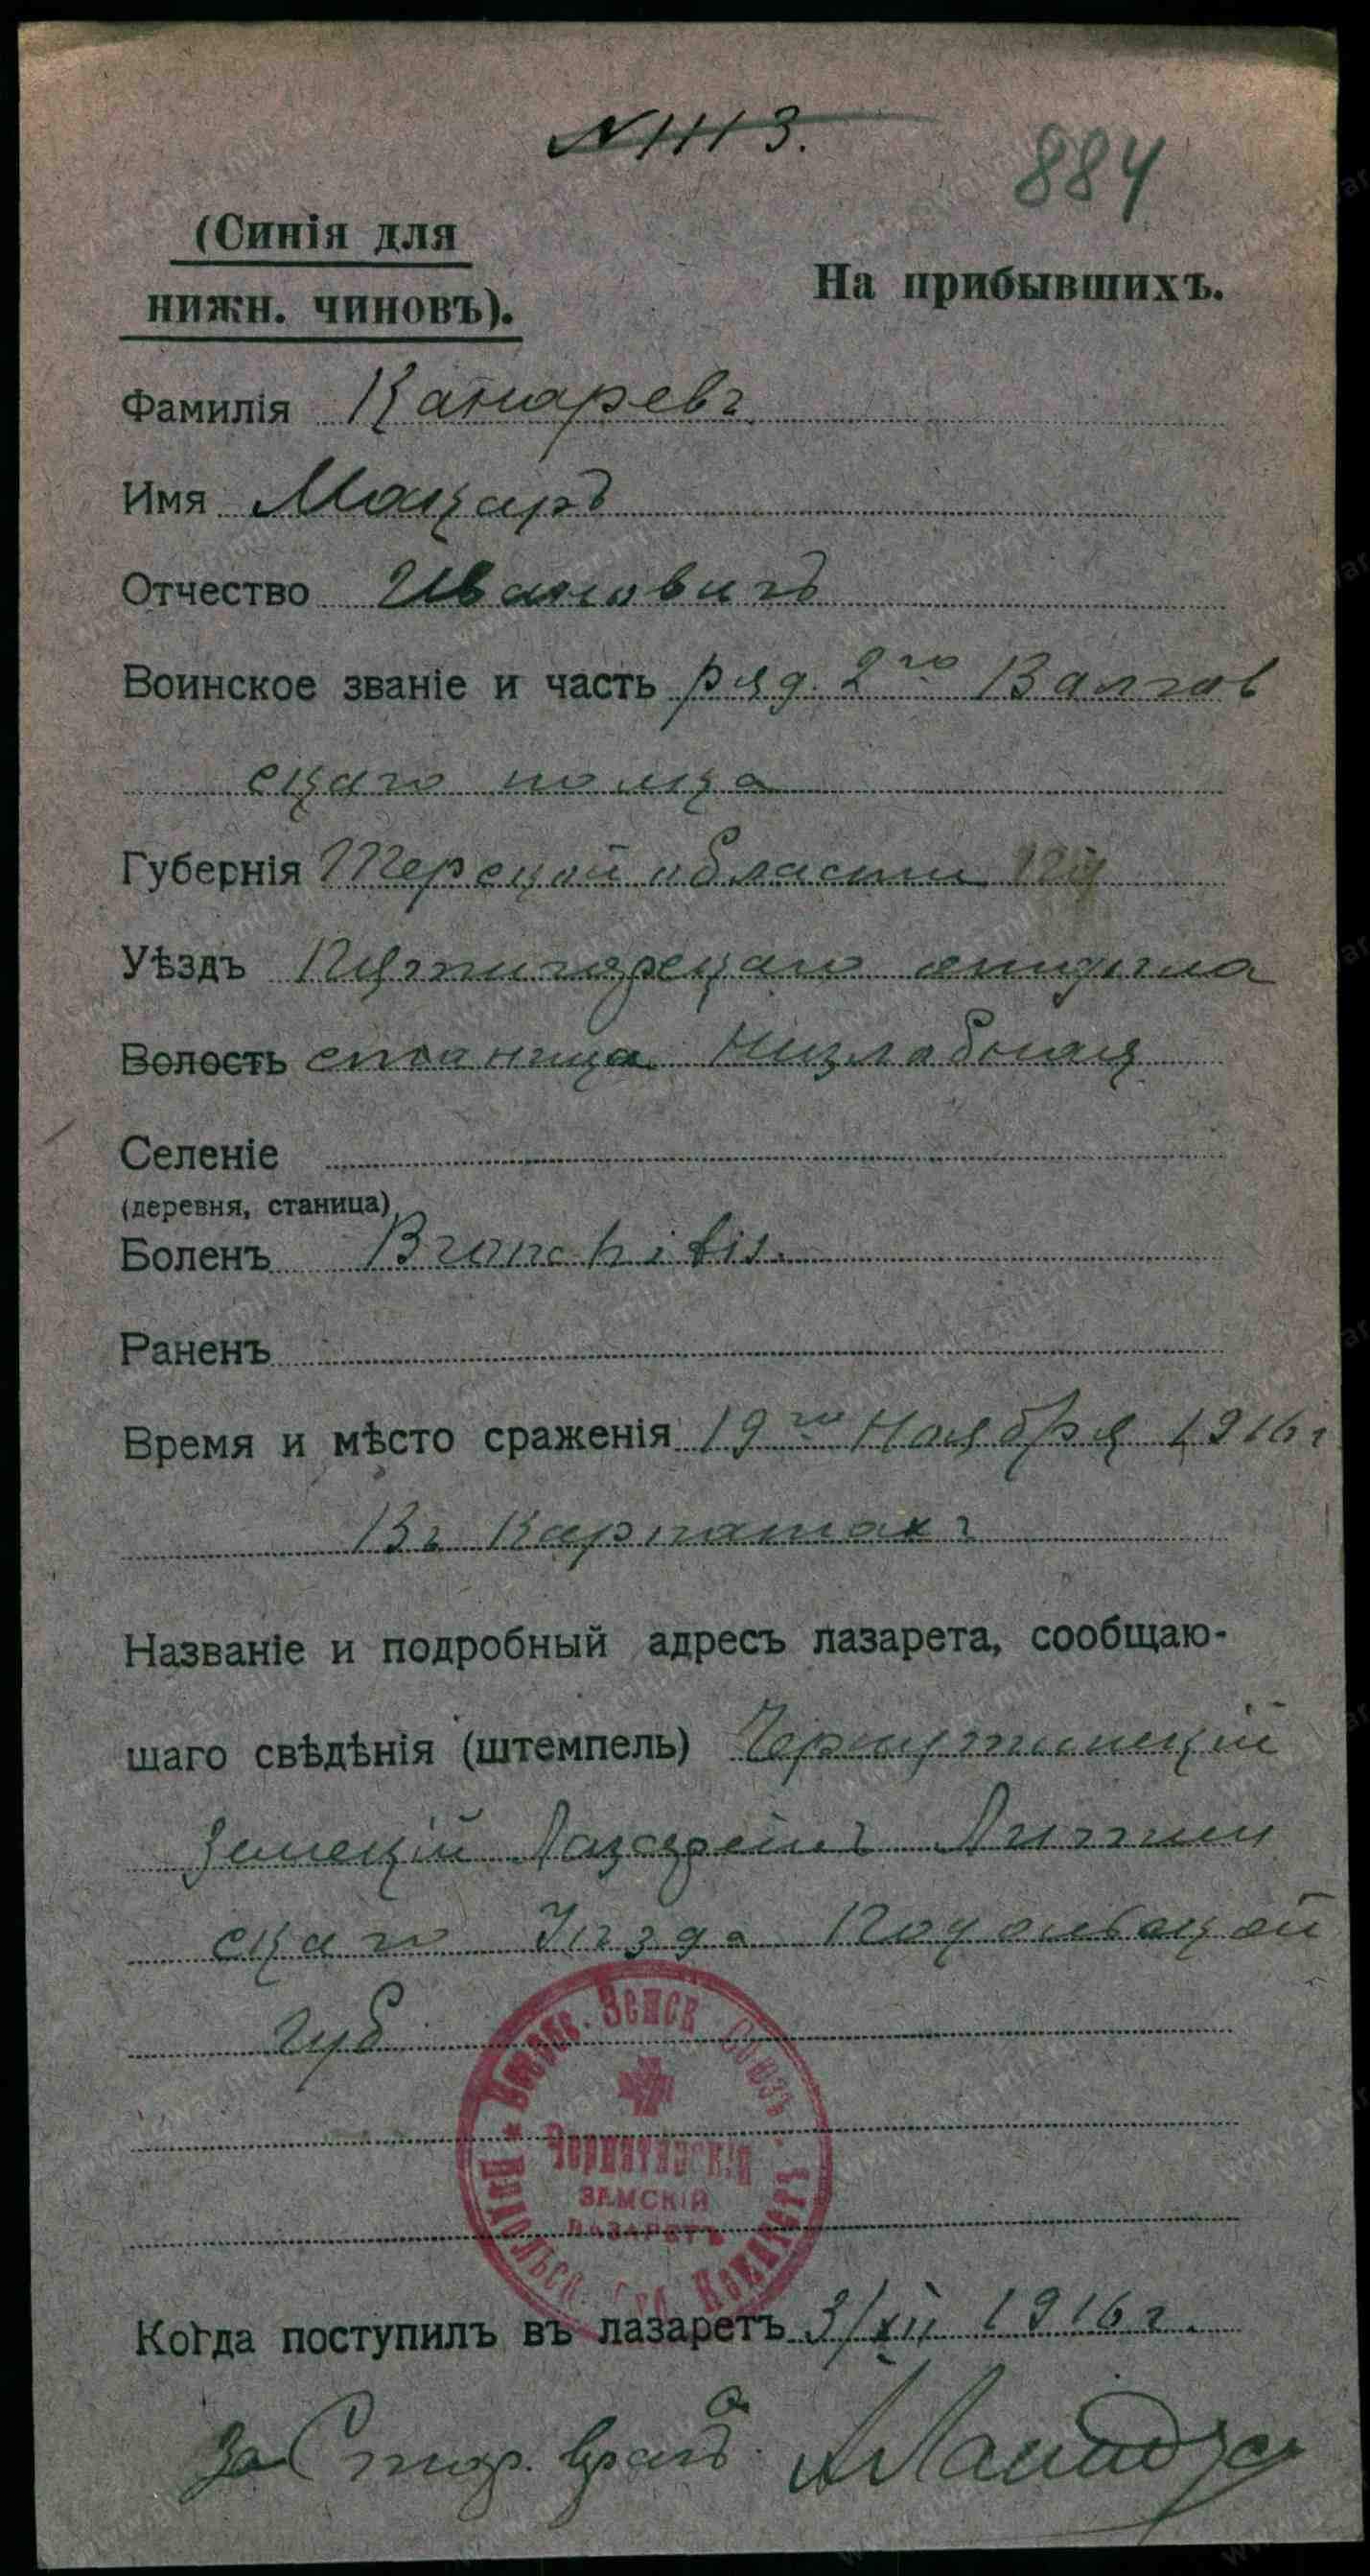 № 1113.
884
(Синія для
нижн. чиновъ).
На прибывшихъ.
Фамилія Канаревъ
Имя Макаръ
Отчество Ивановичъ
Воинское званіе и часть ряд. 2го Валков
скаго полка
Губернія Терской области
Уѣздъ Пятигорскаго отдѣла
Волость станица Незлобная
Селеніе
(деревня, станица)
Боленъ Bronchitis.
Раненъ
Время и мѣсто сраженія 19го Ноября 1916 г
Въ Карпатахъ
Названіе и подробный адресъ лазарета, сообщаю-
щаго свѣдѣнія (штемпель) Чернятинскій
Земскій Лазаретъ Литин
скаго Уѣзда Подольской
губ
Всерос. Земск. Союзъ
Подольск. Губ. Комитетъ
Чернятинскій
ЗЕМСКІЙ
ЛАЗАРЕТЪ
Когда поступилъ въ лазаретъ 3/XII 1916 г.
За Стар. врача